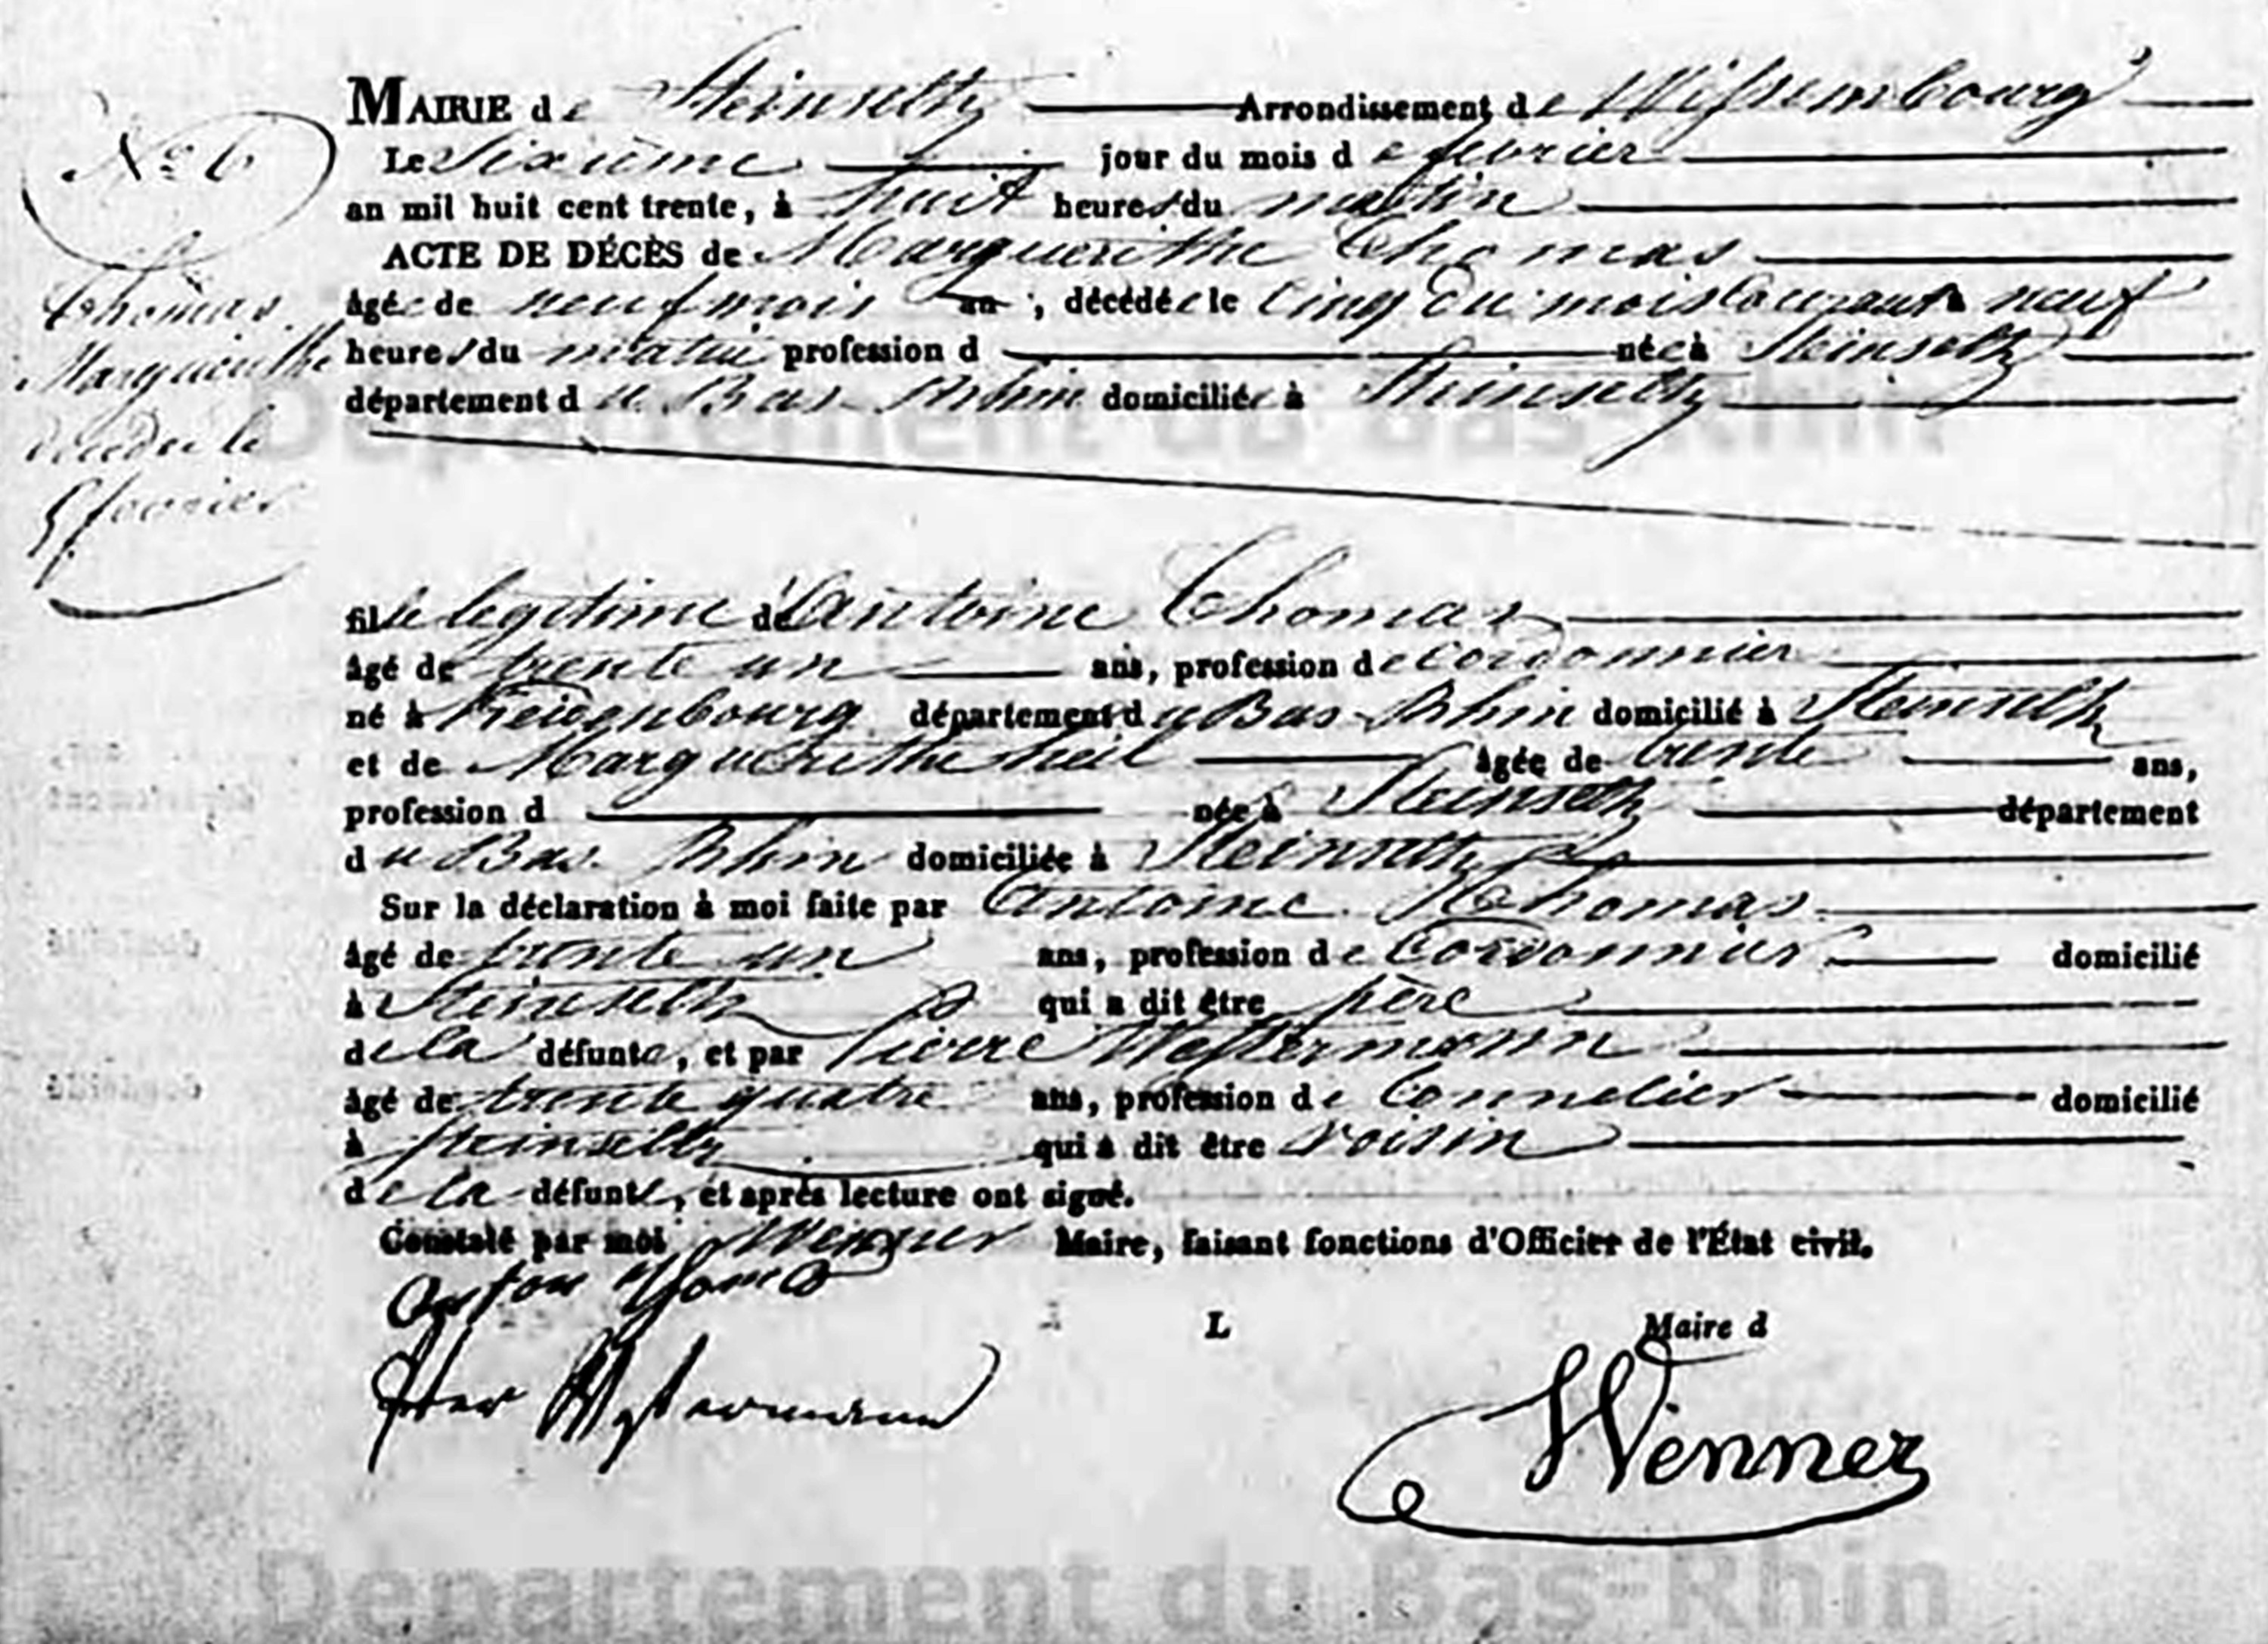 Nº 6
Thomas
Marguerithe
décédée le
5 fevrier
MAIRIE de Steinseltz Arrondissement de Wissembourg
Le Sixième jour du mois de fevrier
an mil huit cent trente, à huit heures du matin
ACTE DE DÉCÈS de Marguerithe Thomas
âgée de neuf mois an, décédée le Cinq du mois Courant à neuf
heures du matin profession d née à Steinseltz
département du Bas-Rhin domiciliée à Steinseltz
Département du Bas-Rhin
fille legitime de Antoine Thomas
âgé de trente un ans, profession de Cordonnier
né à département du Bas-Rhin domicilié à Steinseltz
et de Marguerithe heil âgée de trente ans,
profession d née à Steinseltz département
du Bas-Rhin domiciliée à Steinseltz
Sur la déclaration à moi faite par Antoine Thomas
âgé de trente un ans, profession de Cordonnier domicilié
à Steinseltz qui a dit être père
de la défunte, et par Pierre Westermann
âgé de trente quatre ans, profession de Tonnelier domicilié
à Steinseltz qui a dit être voisin
de la défunte, et après lecture ont signé.
Constaté par moi Wenner Maire, faisant fonctions d'Officier de l'État civil.
Anton Thomas
L Maire d
Peter Westermann
Wenner
Département du Bas-Rhin